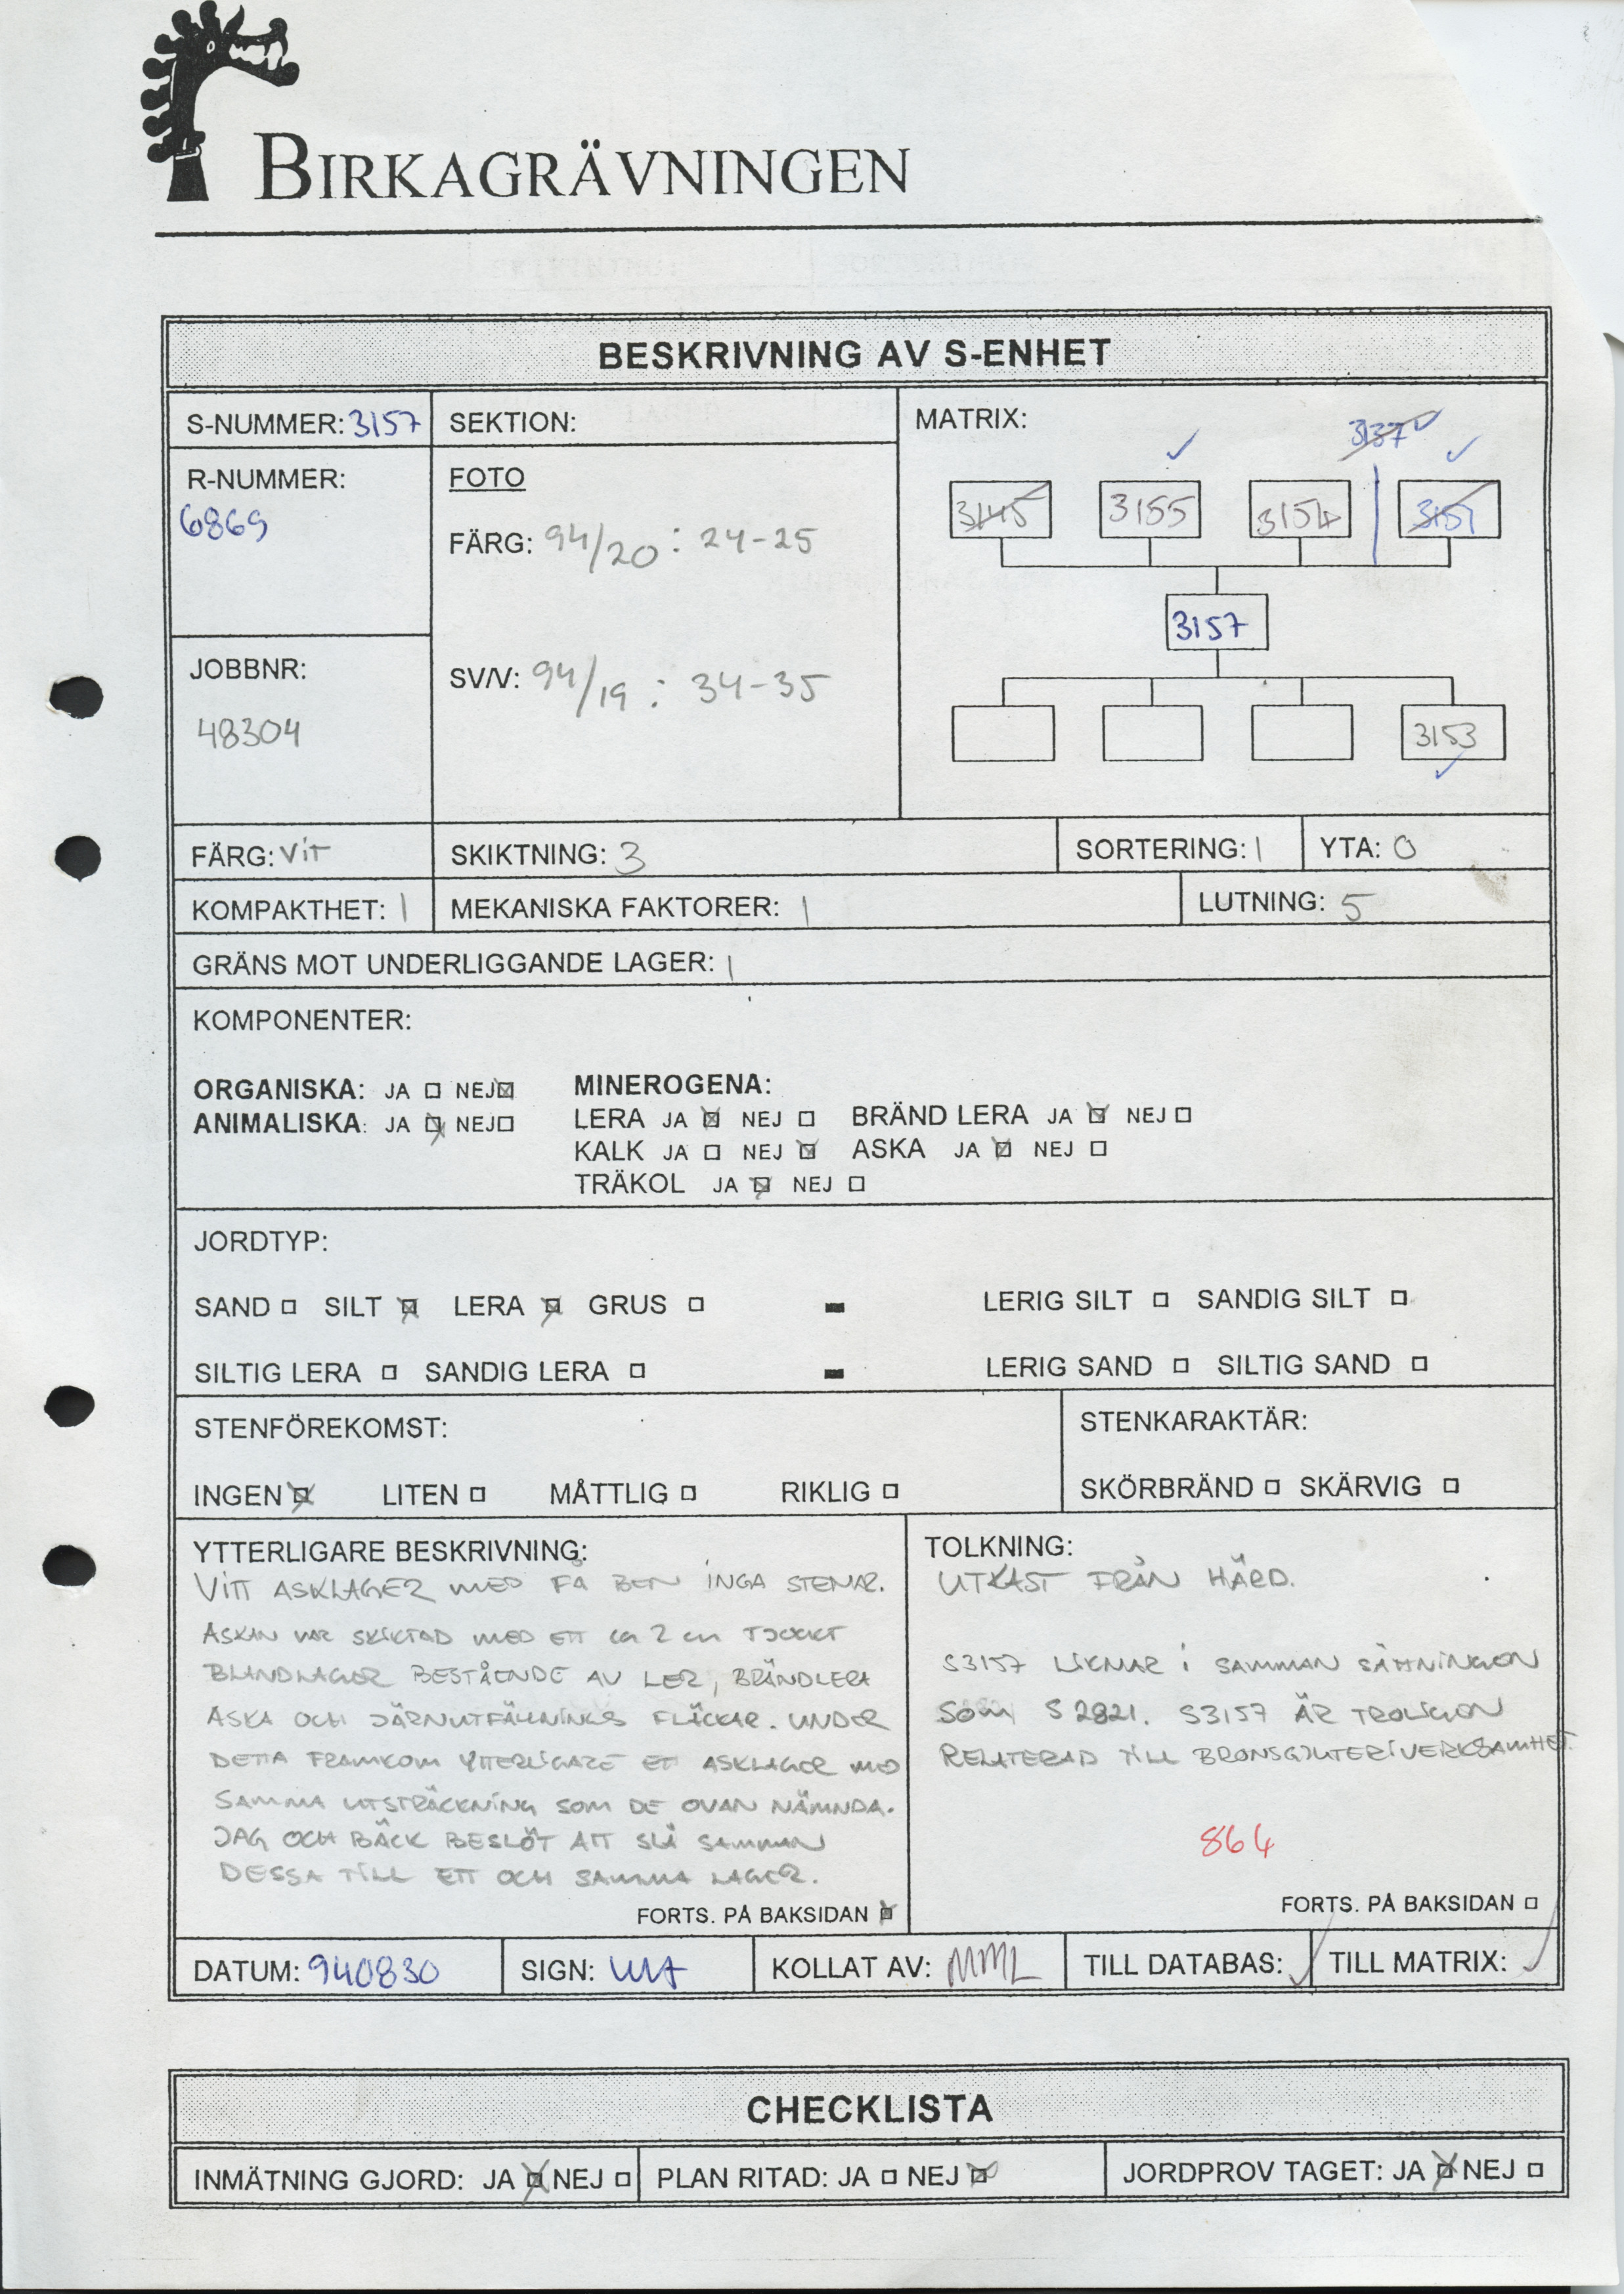 BIRKAGRÄVNINGEN
BESKRIVNING AV S-ENHET
S-NUMMER: 3157
SEKTION:
MATRIX:
3137
R-NUMMER:
6869
FOTO
FÄRG: 94/20 : 24-25
3145 3155 3154 3151
3157
JOBBNR:
48304
SV/V: 94/19 : 34-35
3153
FÄRG: VIT
SKIKTNING: 3
SORTERING: 1
YTA: 0
KOMPAKTHET: 1
MEKANISKA FAKTORER: 1
LUTNING: 5
GRÄNS MOT UNDERLIGGANDE LAGER: 1
KOMPONENTER:
ORGANISKA: JA NEJ MINEROGENA:
ANIMALISKA: JA NEJ LERA JA NEJ BRÄND LERA JA NEJ
KALK JA NEJ ASKA JA NEJ
TRÄKOL JA NEJ
JORDTYP:
SAND SILT LERA GRUS - LERIG SILT SANDIG SILT
SILTIG LERA SANDIG LERA - LERIG SAND SILTIG SAND
STENFÖREKOMST:
INGEN LITEN MÅTTLIG RIKLIG
STENKARAKTÄR:
SKÖRBRÄND SKÄRVIG
YTTERLIGARE BESKRIVNING:
VITT ASKLAGER MED FÅ BEN INGA STENAR.
ASKAN VAR SKIKTAD MED ETT CA 2 CM TJOCKT
BLANDLAGER BESTÅENDE AV LER, BRÄNDLERA
ASKA OCH JÄRNUTFÄLLNINGS FLÄCKAR. UNDER
DETTA FRAMKOM YTTERLIGARE ETT ASKLAGER MED
SAMMA UTSTRÄCKNING SOM DE OVAN NÄMNDA.
JAG OCH BÄCK BESLÖT ATT SLÅ SAMMAN
DESSA TILL ETT OCH SAMMA LAGER.
FORTS. PÅ BAKSIDAN
TOLKNING:
UTKAST FRÅN HÄRD.
S3157 LIKNAR I SAMMAN SÄTTNINGEN
SOM S 2821. S3157 ÄR TROLIGEN
RELATERAD TILL BRONSGJUTERIVERKSAMHET.
864
FORTS. PÅ BAKSIDAN
DATUM: 940830
SIGN:
KOLLAT AV: MML
TILL DATABAS:
TILL MATRIX:
CHECKLISTA
INMÄTNING GJORD: JA NEJ
PLAN RITAD: JA NEJ
JORDPROV TAGET: JA NEJ